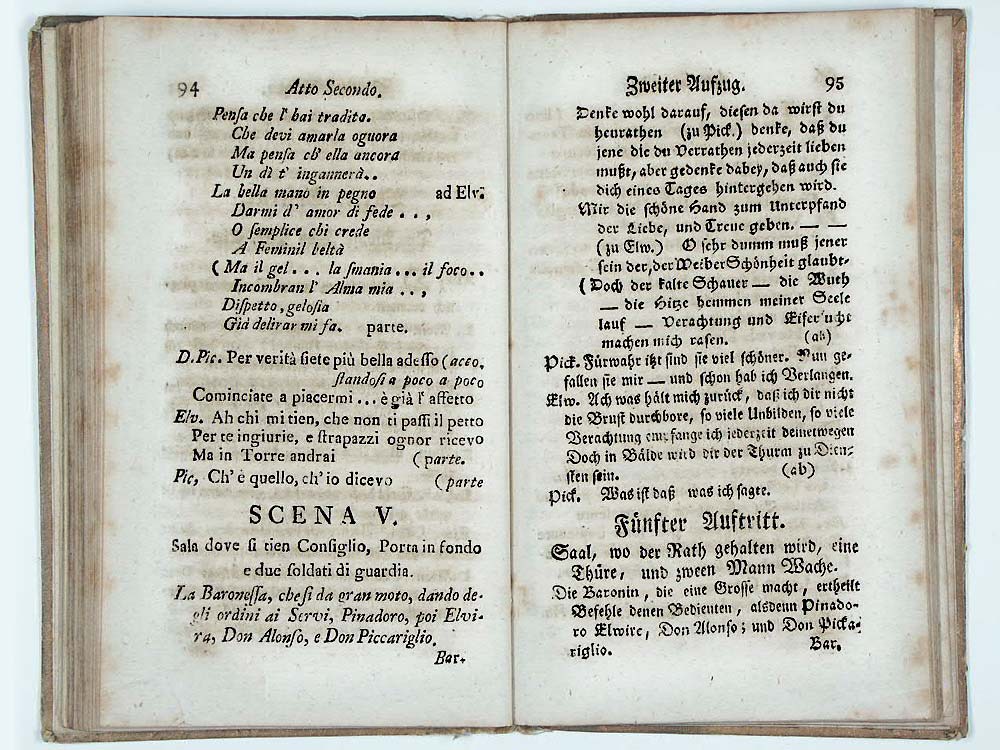 94 Atto Secondo.
Penſa che l' hai tradita.
Che devi amarla ognora
Ma penſa ch' ella ancora
Un dì t' ingannerà..
La bella mano in pegno ad Elv.
Darmi d' amor di fede . . ,
O ſemplice chi crede
A Feminil beltà
(Ma il gel . . . la ſmania . . . il foco . .
Incombran l' Alma mia . . ,
Diſpetto, geloſia
Già delirar mi fa. parte.
D. Pic. Per verità ſiete più bella adeſſo (acco,
ſtandoſi a poco a poco
Cominciate a piacermi . . . è già l' affetto
Elv. Ah chi mi tien, che non ti paſſi il petto
Per te ingiurie, e ſtrapazzi ognor ricevo
Ma in Torre andrai (parte.
Pic, Ch' è quello, ch' io dicevo (parte
SCENA V.
Sala dove ſi tien Conſiglio, Porta in fondo
e due ſoldati di guardia.
La Baroneſſa, che ſi da gran moto, dando de-
gli ordini ai Servi, Pinadoro, poi Elvi-
ra, Don Alonſo, e Don Piccariglio,
Bar.
Zweiter Aufzug. 95
Denke wohl darauf, dieſen da wirſt du
heurathen (zu Pick.) denke, daß du
jene die du Verrathen jederzeit lieben
mußt, aber gedenke dabey, daß auch ſie
dich eines Tages hintergehen wird.
Mir die ſchöne Hand zum Unterpfand
der Liebe, und Treue geben. — —
(zu Elw.) O ſehr dumm muß jener
ſein der, der Weiber Schönheit glaubt-
(Doch der kalte Schauer — die Wuth
— die Hitze hemmen meiner Seele
lauf — Verachtung und Eiferſucht
machen mich raſen. (ab)
Pick. Fürwahr itzt ſind ſie viel ſchöner. Nun ge-
fallen ſie mir — und ſchon hab ich Verlangen.
Elw. Ach was hält mich zurück, daß ich dir nicht
die Bruſt durchbore, ſo viele Unbilden, ſo viele
Verachtung empfange ich jederzeit deinetwegen
Doch in Bälde wird dir der Thurm zu Dien-
ſten ſein. (ab)
Pick. Was iſt daß was ich ſagte.
Fünfter Auftritt.
Saal, wo der Rath gehalten wird, eine
Thüre, und zween Mann Wache.
Die Baronin, die eine Groſſe macht, ertheilt
Befehle denen Bedienten, alsdenn Pinado-
ro Elwire, Don Alonſo; und Don Picka-
riglio. Bar.